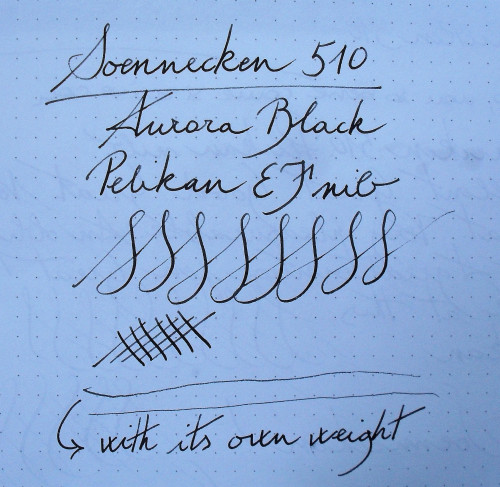 Soennecken 510
Aurora Black
Pelikan EF nib
with its own weight